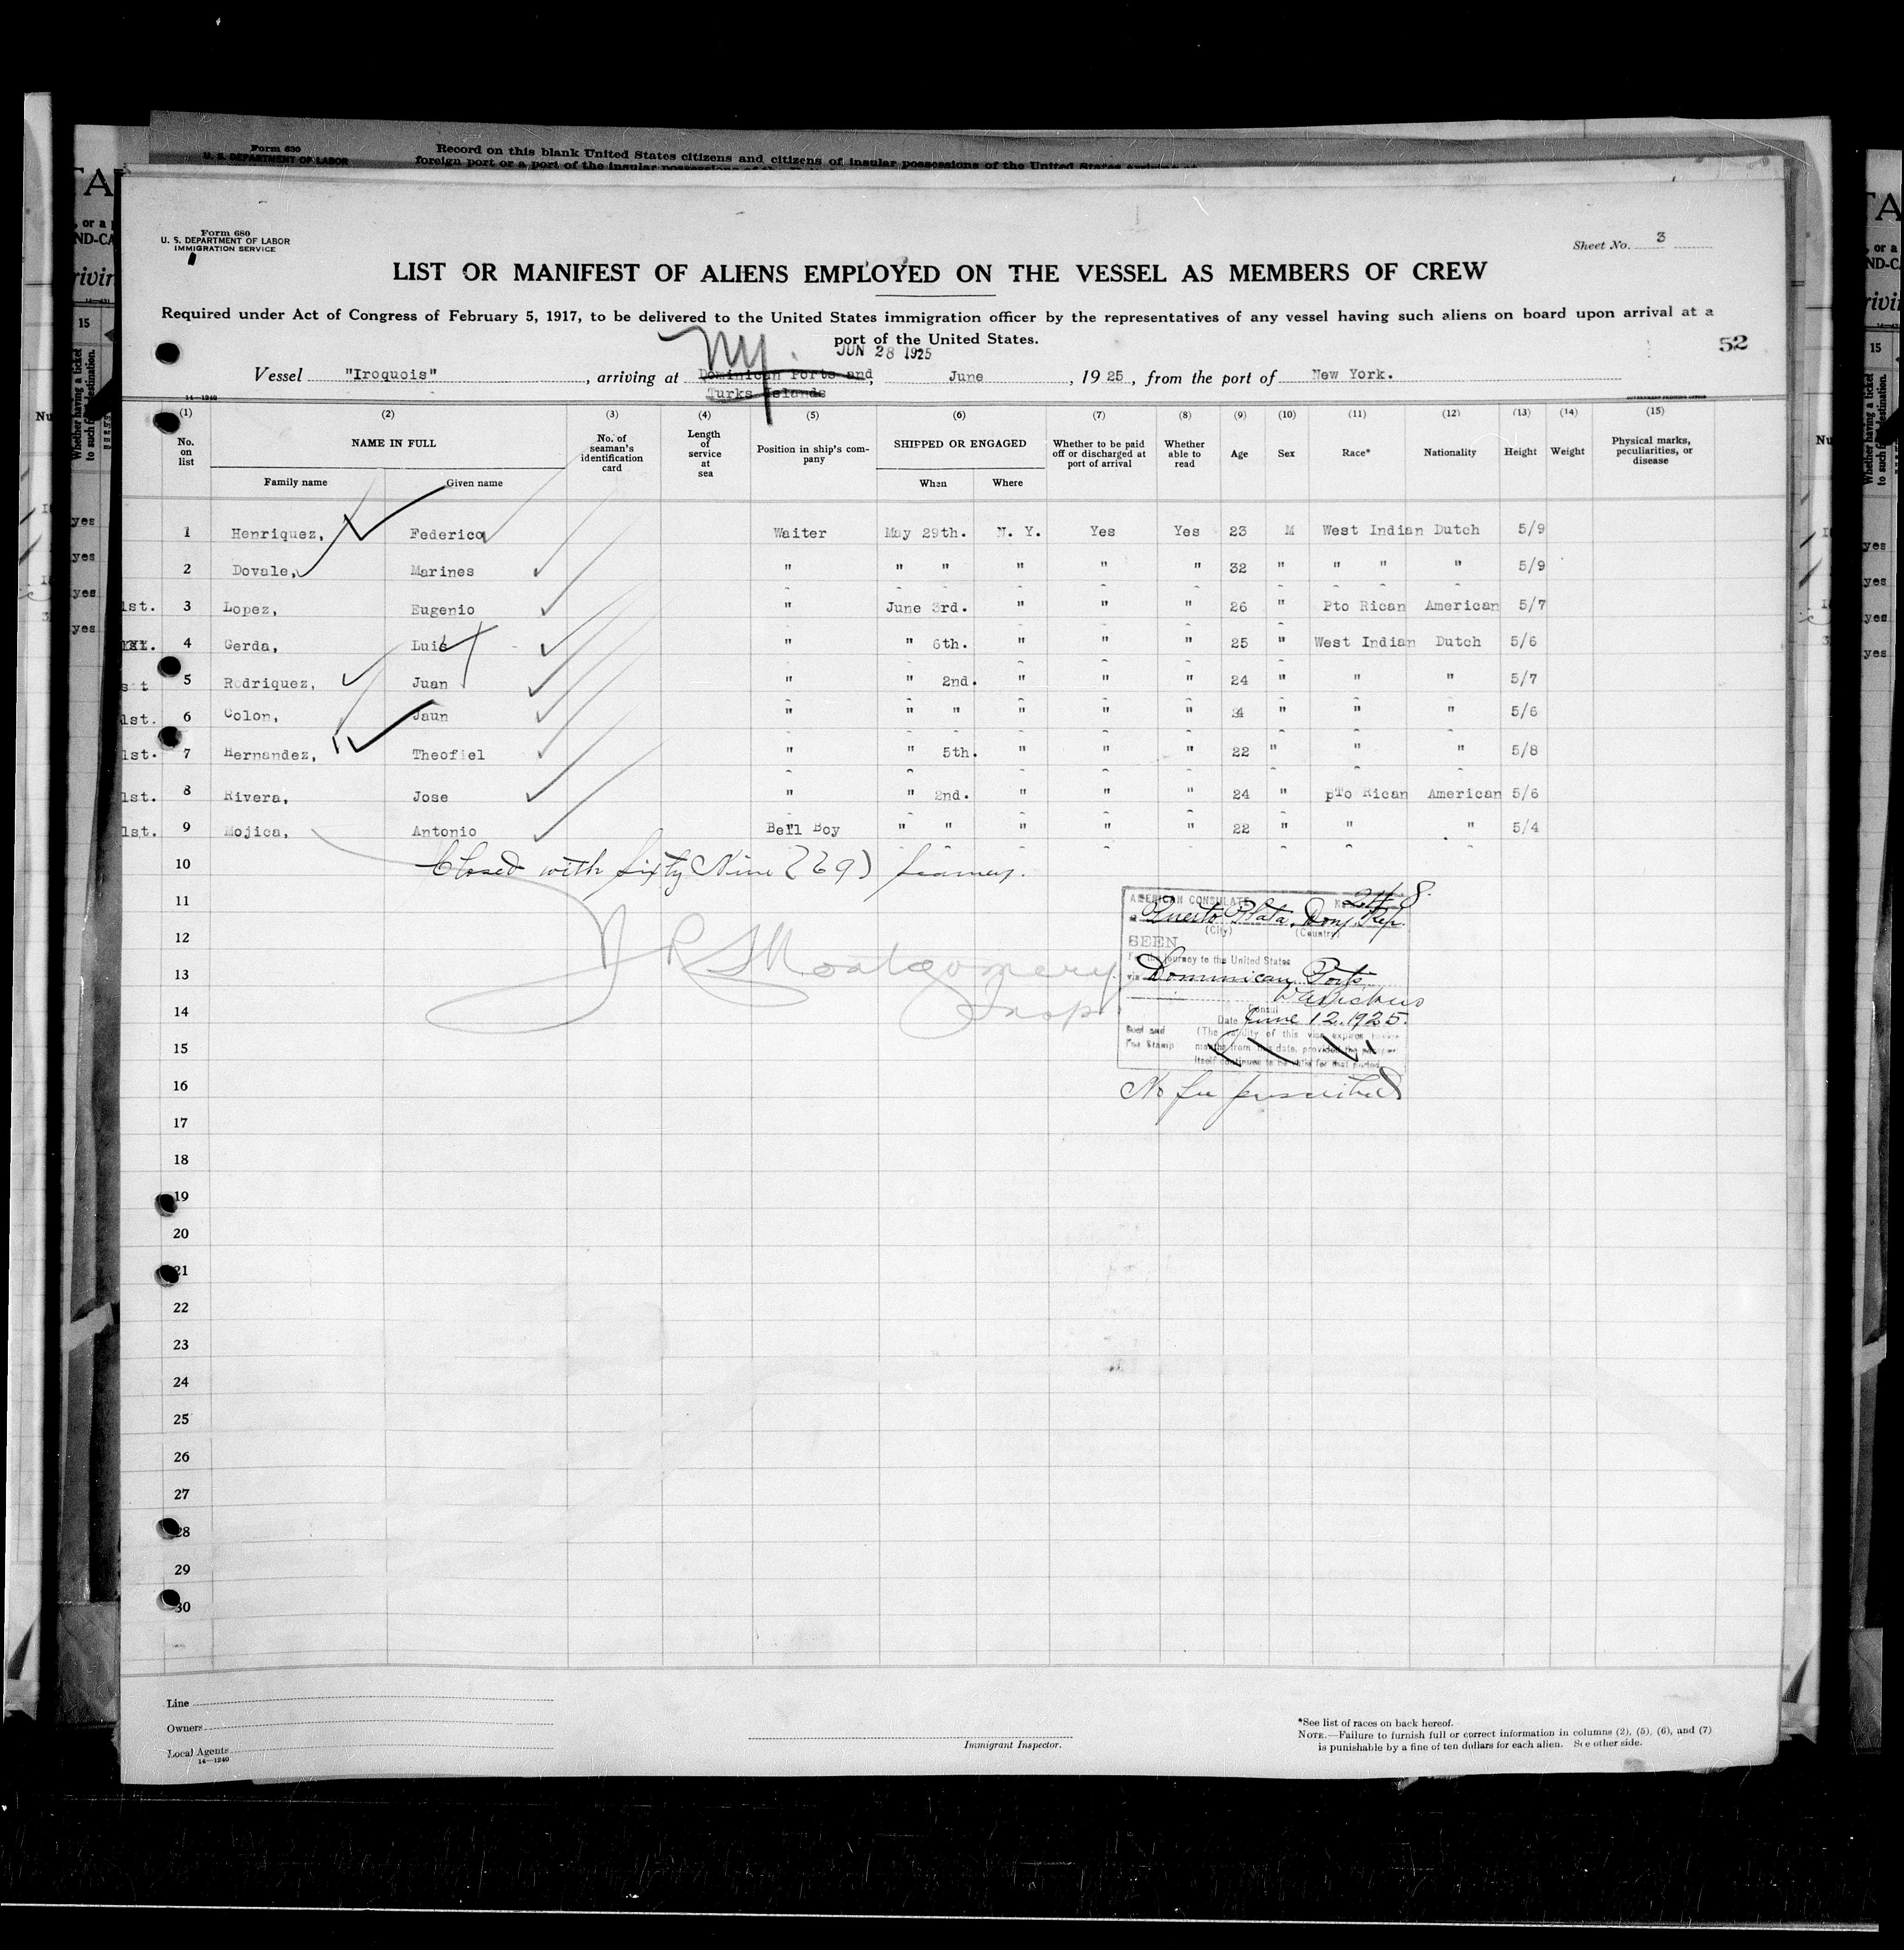 Form 630
U. S. DEPARTMENT OF LABOR
Record on this blank United States citizens and citizens of insular possessions of the United States
foreign port or a port of the insular possessions of the United States
Form 680
U. S. DEPARTMENT OF LABOR
IMMIGRATION SERVICE
Sheet No. 3
LIST OR MANIFEST OF ALIENS EMPLOYED ON THE VESSEL AS MEMBERS OF CREW
Required under Act of Congress of February 5, 1917, to be delivered to the United States immigration officer by the representatives of any vessel having such aliens on board upon arrival at a
port of the United States.
52
NY. JUN 28 1925
Vessel "Iroquois", arriving at Dominican Ports and, June, 1925, from the port of New York.
Turks Islands
14—1240
GOVERNMENT PRINTING OFFICE
(1) (2) (3) (4) (5) (6) (7) (8) (9) (10) (11) (12) (13) (14) (15)
No. on list NAME IN FULL No. of seaman's identification card Length of service at sea Position in ship's company SHIPPED OR ENGAGED Whether to be paid off or discharged at port of arrival Whether able to read Age Sex Race* Nationality Height Weight Physical marks, peculiarities, or disease
Family name Given name When Where
1 Henriquez, Federico Waiter May 29th. N. Y. Yes Yes 23 M West Indian Dutch 5/9
2 Dovale, Marines " " " " " " 32 " " " " 5/9
1st. 3 Lopez, Eugenio " June 3rd. " " " 26 " Pto Rican American 5/7
4 Gerda, Luis " " 6th. " " " 25 " West Indian Dutch 5/6
5 Rodriquez, Juan " " 2nd. " " " 24 " " " 5/7
1st. 6 Colon, Jaun " " " " " " " " " 5/6
1st. 7 Hernandez, Theofiel " " 5th. " " " 22 " " " 5/8
1st. 8 Rivera, Jose " " 2nd. " " " 24 " pTo Rican American 5/6
1st. 9 Mojica, Antonio Bell Boy " " " " " 22 " " " 5/4
10 Closed with Sixty Nine (69) names.
11
12
13
14
15
16
17
18
19
20
21
22
23
24
25
26
27
28
29
30
J R S Montgomery
Insp.
AMERICAN CONSULATE
Puerto Plata, Dom. Rep.
(City) (Country)
SEEN
For the journey to the United States
via Dominican Ports
Consul
Date June 12, 1925.
Seal and
Fee Stamp
(The validity of this visa expires
months from this date, provided the passport
itself continues to be valid for that period
No fee prescribed
Line
Owners
Local Agents
14—1240
Immigrant Inspector.
*See list of races on back hereof.
NOTE.—Failure to furnish full or correct information in columns (2), (5), (6), and (7)
is punishable by a fine of ten dollars for each alien. See other side.